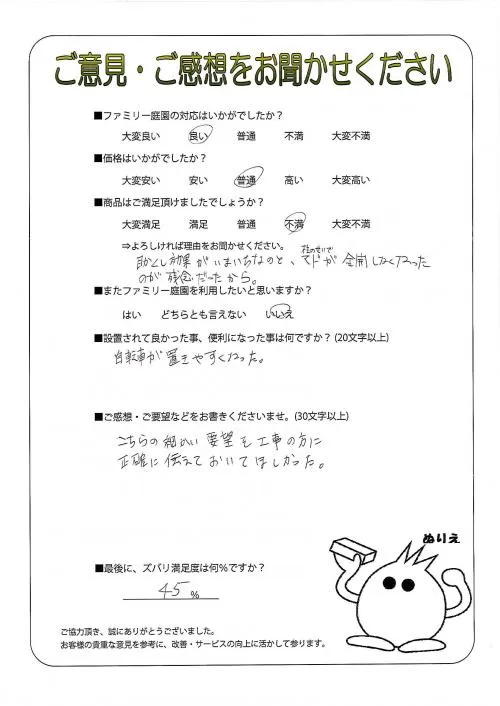 ご意見・ご感想をお聞かせください
■ファミリー庭園の対応はいかがでしたか？
大変良い 良い 普通 不満 大変不満
■価格はいかがでしたか？
大変安い 安い 普通 高い 大変高い
■商品はご満足頂けましたでしょうか？
大変満足 満足 普通 不満 大変不満
⇒よろしければ理由をお聞かせください。
柱のせいで
効果がいまいちなのと、ドが全開しなくなった
のが残念だったから。
■またファミリー庭園を利用したいと思いますか？
はい どちらとも言えない いいえ
■設置されて良かった事、便利になった事は何ですか？(20文字以上)
自転車が置きやすくなった。
■ご感想・ご要望などをお書きくださいませ。(30文字以上)
こちらの細かい要望も工事の方に
正確に伝えておいてほしかった。
ぬりえ
■最後に、ズバリ満足度は何%ですか？
45 %
ご協力頂き、誠にありがとうございました。
お客様の貴重な意見を参考に、改善・サービスの向上に活かして参ります。